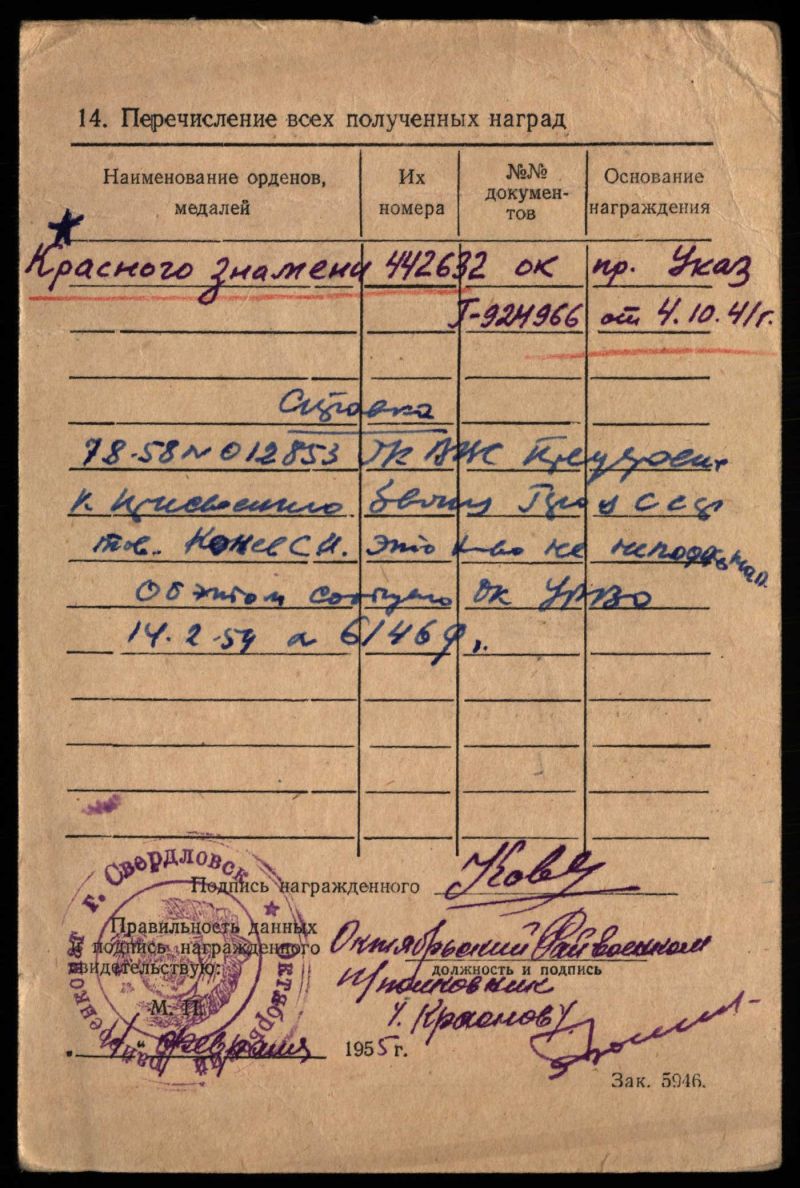 14. Перечисление всех полученных наград
Наименование орденов, медалей
Их номера
№№ документов
Основание награждения
Красного Знамени 442632 ок пр. Указ
Г-924966 от 4.10.41г.
Справка
78-58 № 012853 ГК ВЖ
к звания Героя ССР
тов. это не
Об этом сообщено ОК УрВО
14.2.59 № 61469
г. Свердловск
Октябрьский райвоенкомат
Подпись награжденного
Правильность данных
и подпись награжденного
свидетельствую:
Октябрьский Райвоенком
должность и подпись
П/полковник
/Краснов/
М. П.
„ “ февраля 1955 г.
Зак. 5946.